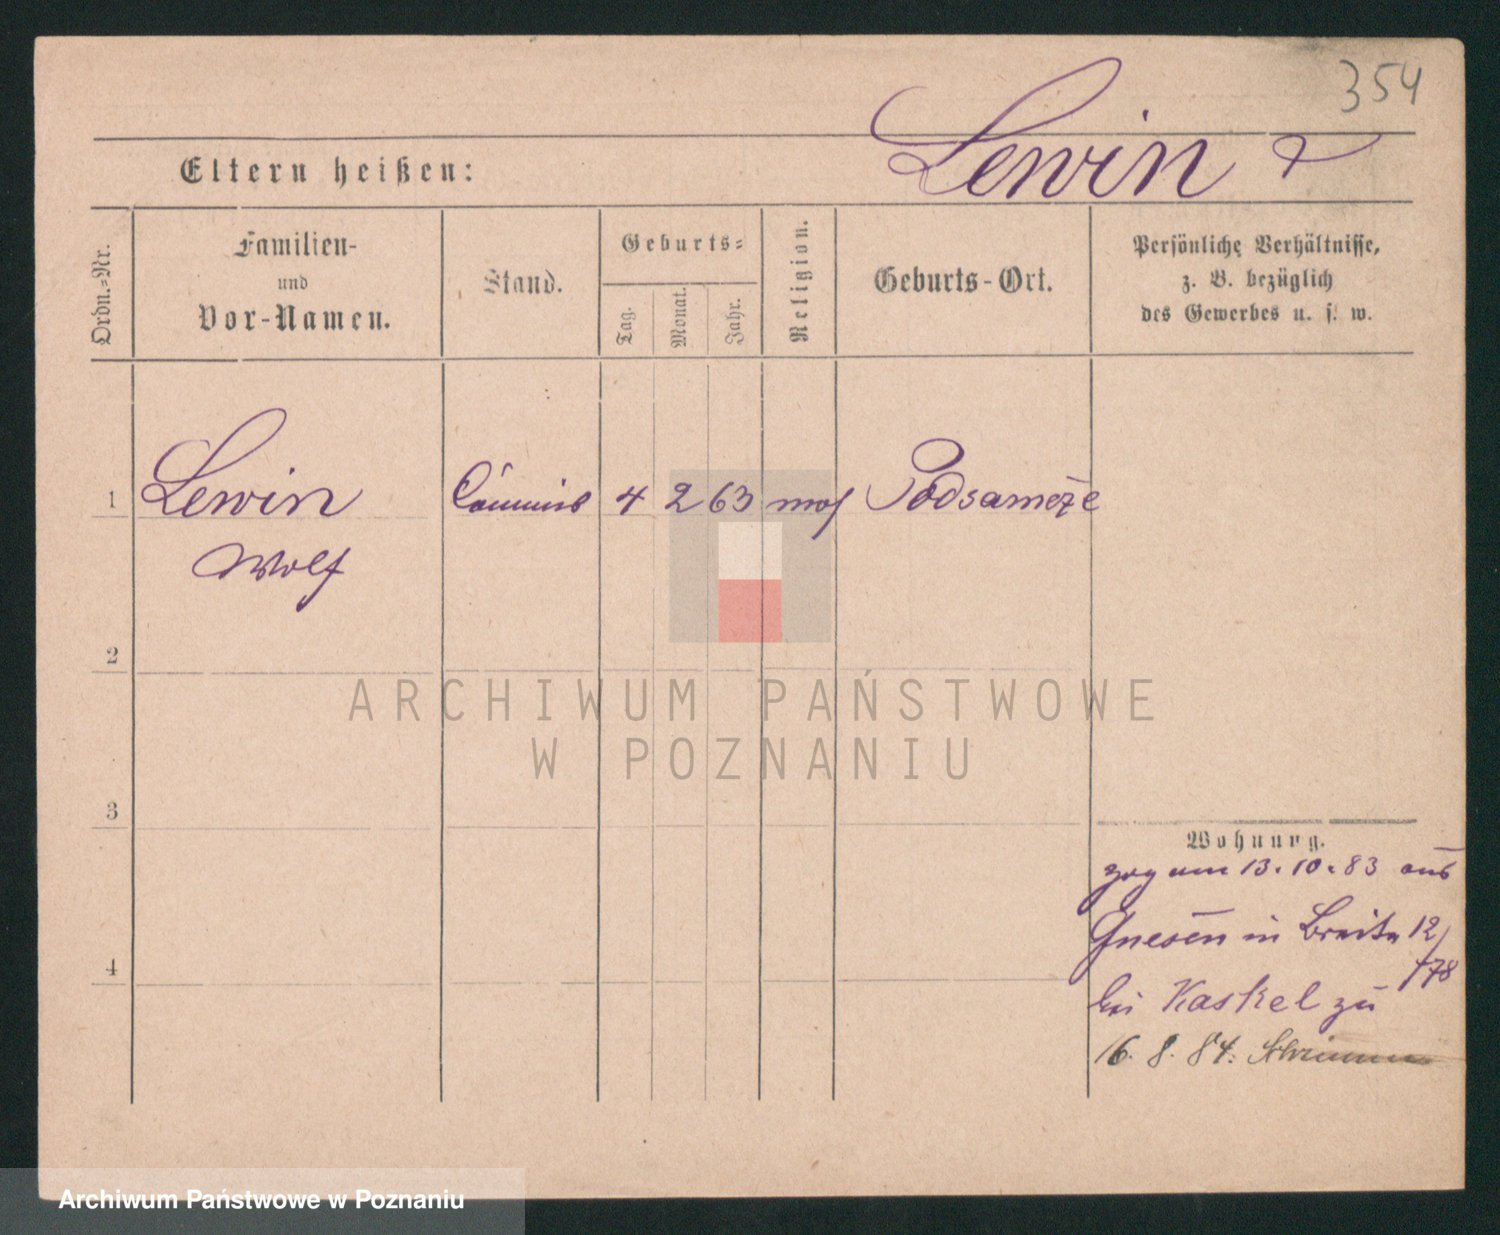 354
Lewin
Eltern heißen:
Ordn.=Nr.
Familien-
und
Vor-Namen.
Stand.
Geburts=
Tag.
Monat.
Jahr.
Religion.
Geburts-Ort.
Persönliche Verhältnisse,
z. B. bezüglich
des Gewerbes u. s. w.
1 Lewin Commis 4 2 63 mos Podsameze
Wolf
2
3
4
ARCHIWUM PAŃSTWOWE
W POZNANIU
Wohnung.
zog am 13.10.83 aus
Gnesen in Breite 12/
78
bei Kaskel zu
16.8.84.
Archiwum Państwowe w Poznaniu